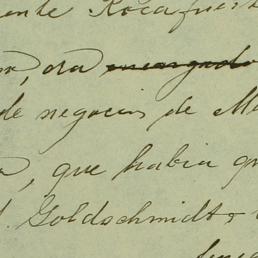 ente Rocafuer
, era encargado
de negocios de Mé
, que habia q
Goldschmidt y